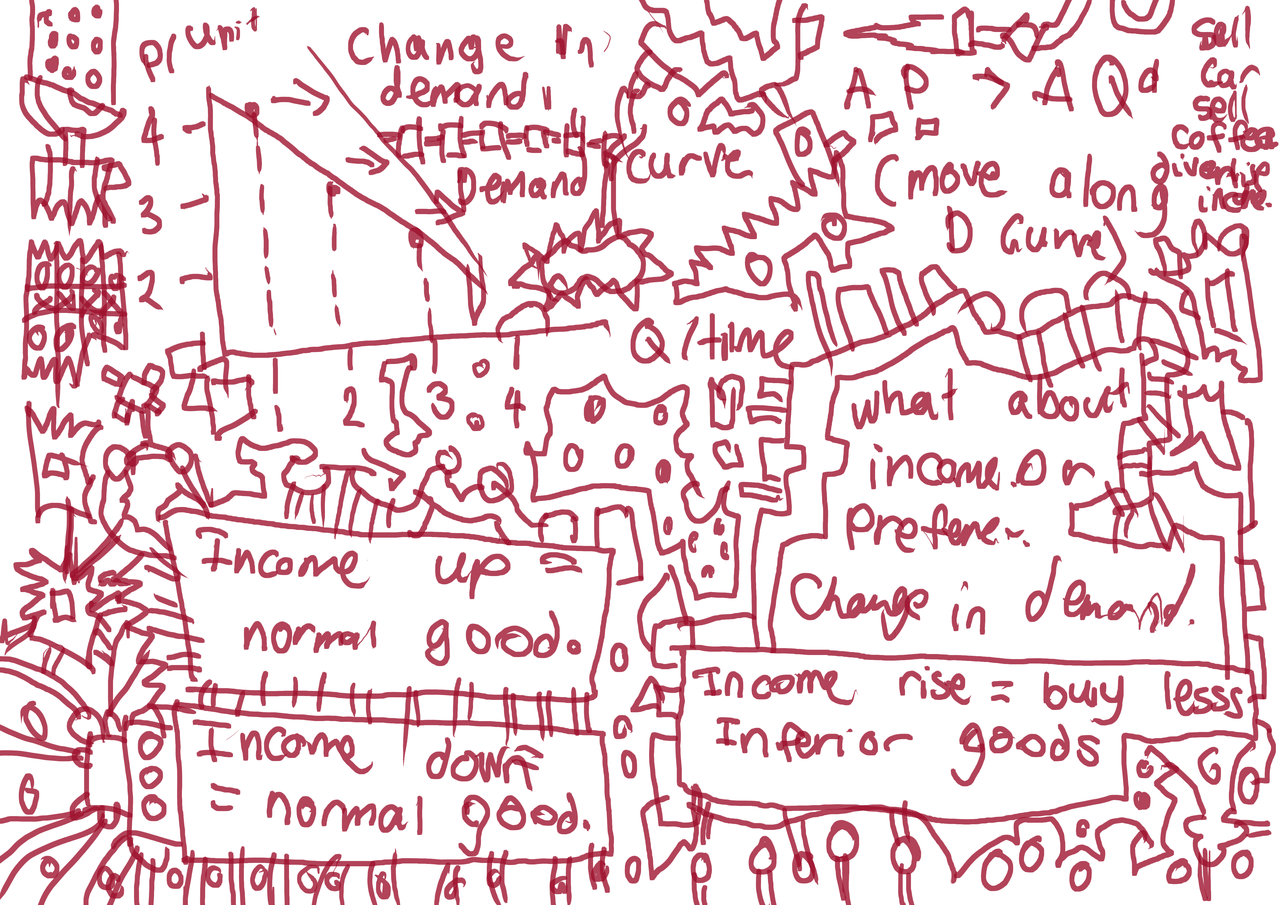 P/ unit
4
3
2
Change in
demand
Demand
curve
Q / time
2 3 4
Δ P → Δ Qd
(move along
D Curve)
sell
car
sell
coffee
what about
income or
Prefene..
Change in demand.
Income up =
normal good.
Income down
= normal good.
Income rise = buy lesss
Inferior goods